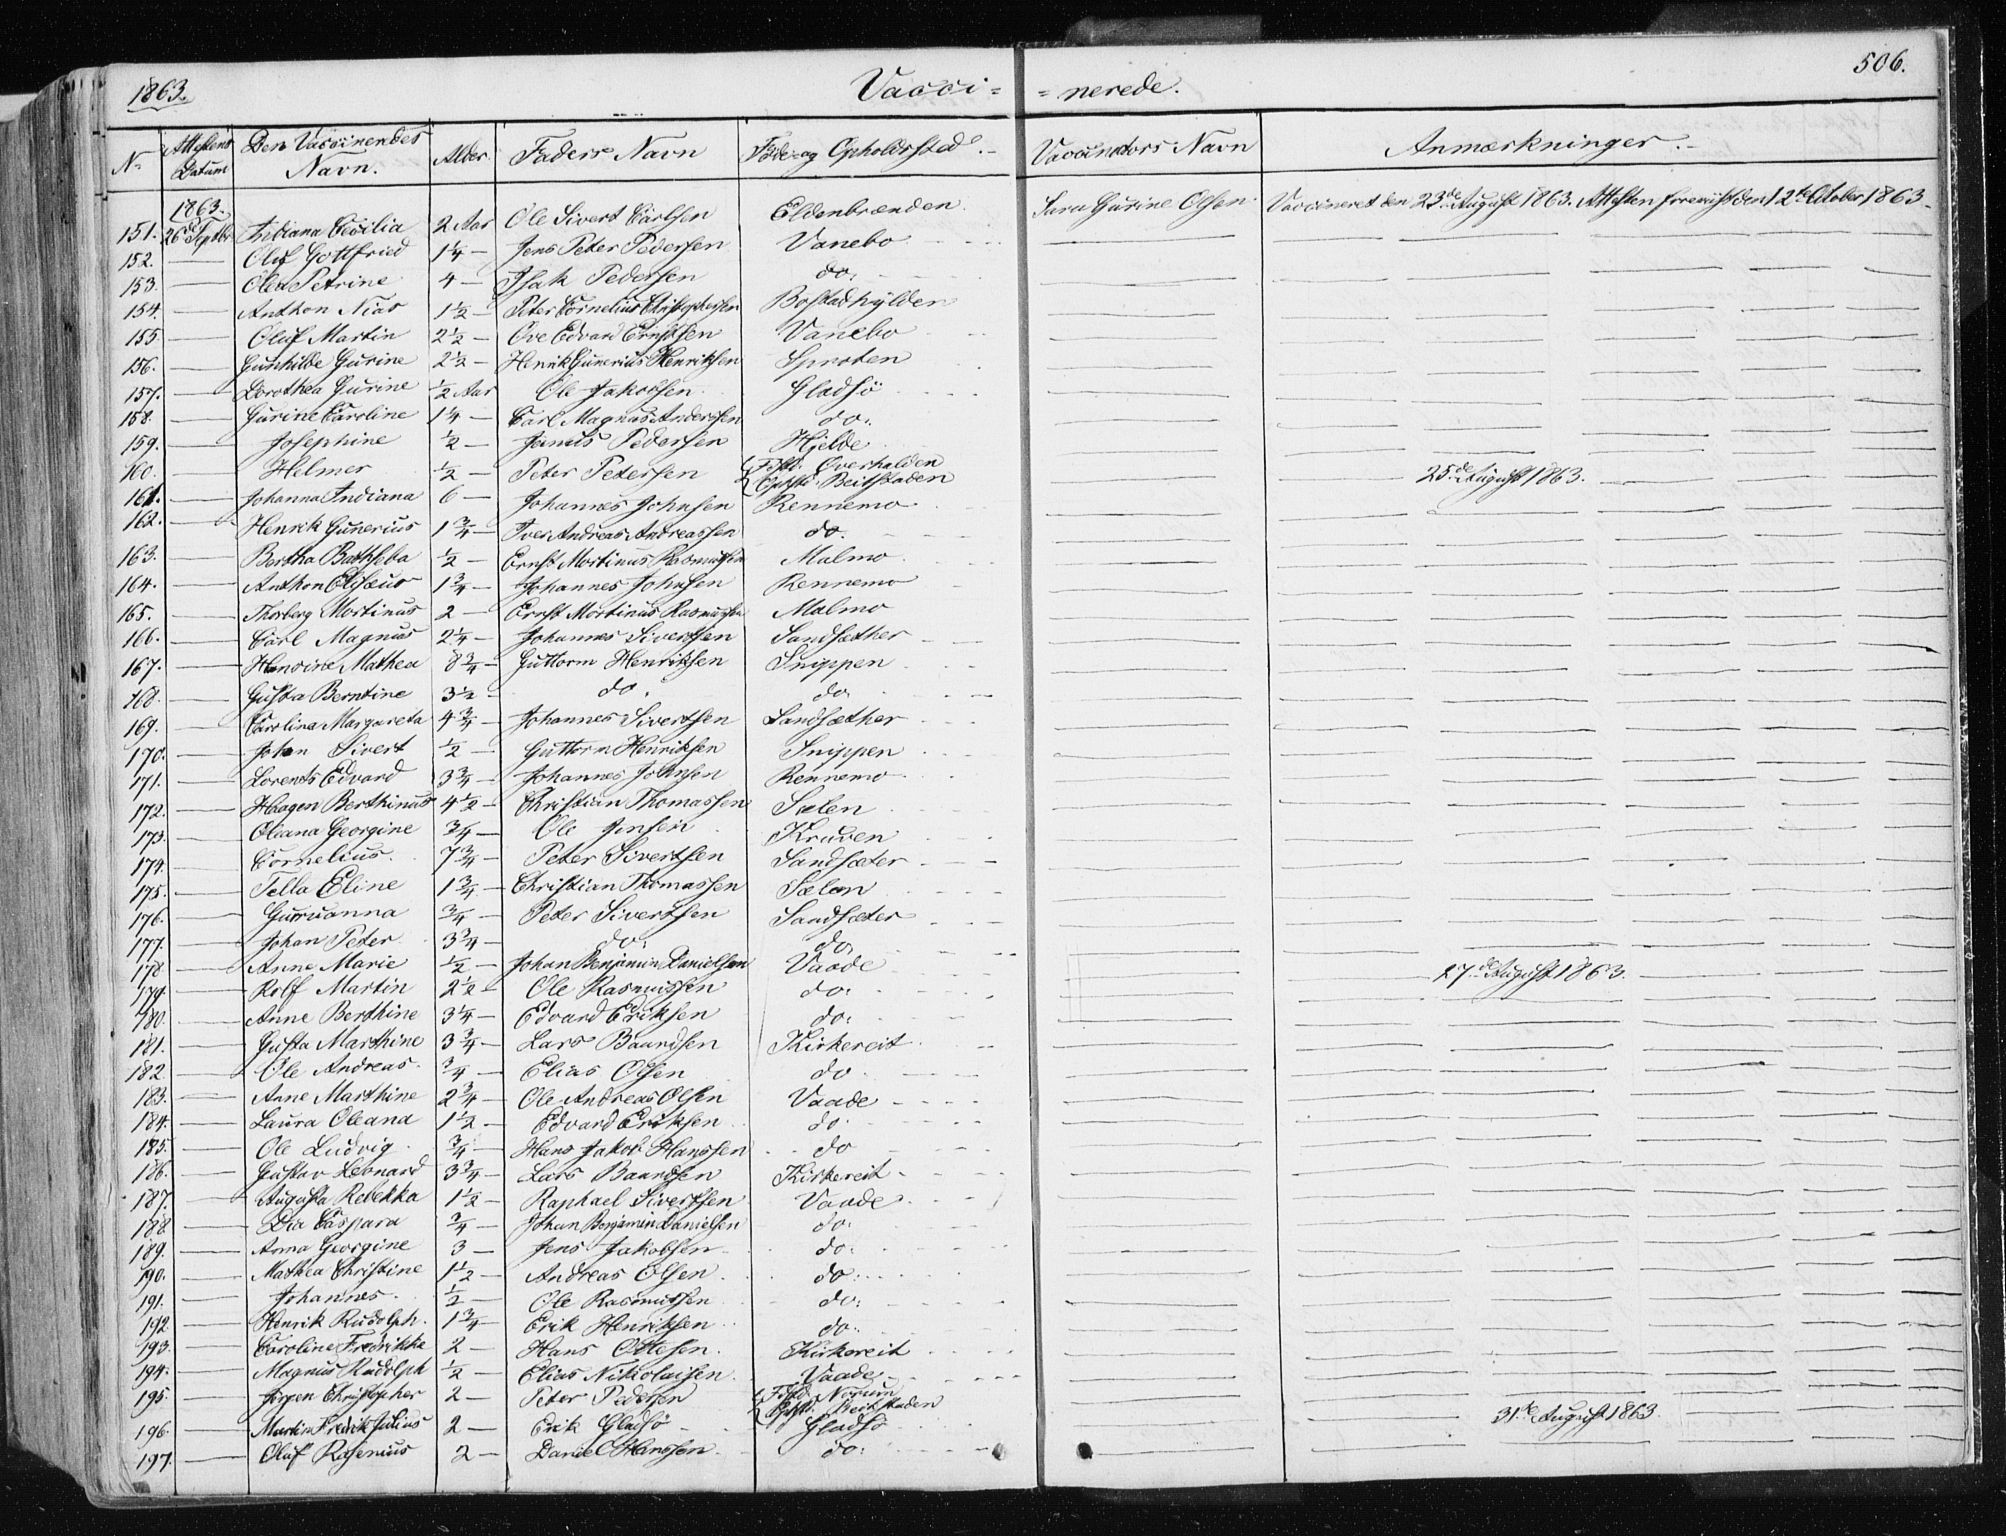 1863.
Vacci=
=nerede.
506.
No
Attestens Datum
Den Vaccinerendes Navn.
Alder.
Faders Navn
Føde- og Opholdssted.
Vaccinators Navn
Anmærkninger.
1863.
151. 26de Septbr Indiana Cecilia 2 Aar Ole Sivert Carlsen Eldenbrænden. Sara Gurine Olsen. Vaccineret den 23de August 1863. Attesten foreviist den 12te October 1863.
152. — Oluf Gottfried 1 1/4 — Jens Peter Pedersen Vanebo
153. — Olea Petrine 4 — Isak Pedersen do.
154. — Anthon Nias 1 1/2 — Peter Cornelius Christophersen Bostadhylden
155. — Oluf Martin 2 1/2 — Ove Edvard Ernstsen Vanebo
156. — Gunhilde Gurine 2 1/2 — Henrik Gunerius Henriksen Sproten
157. — Dorothea Gurine 1/2 Aar Ole Jakobsen Gladsö
158. — Gurine Caroline 1 1/4 — Carl Magnus Anderssen do.
159. — Josephine 1/2 — Jonas Pedersen Hjelde
160. — Helmer 1/2 — Peter Petersen Fdst. Overhalden Opst. Beitstaden 25de August 1863.
161. — Johanna Indiana 6 — Johannes Johnsen Rennemo
162. — Henrik Gunerius 1 3/4 — Iver Andreas Andreassen do.
163. — Bertha Bathseba 1/2 — Ernst Mortinus Rasmussen Malmo
164. — Anthon Elisæus 1 3/4 — Johannes Johnsen Rennemo
165. — Thorberg Mortinus 2 — Ernst Mortinus Rasmussen Malmo
166. — Carl Magnus 2 1/4 — Johannes Sivertsen Sandsæther
167. — Hansine Mathea 8 3/4 — Guttorm Henriksen Snippen
168. — Gusta Berntine 3 1/2 — do. do.
169. — Carolina Margareta 4 3/4 — Johannes Sivertsen Sandsæther
170. — Johan Sivert 1/2 — Guttorm Henriksen Snippen
171. — Lorents Edvard 3 3/4 — Johannes Johnsen Rennemo
172. — Haagen Berthinus 4 1/2 — Christian Thomassen Sælen
173. — Oleana Georgine 3/4 — Ole Jensen Kraaen
174. — Cornelius. 7 3/4 — Peter Sivertsen Sandsæter
175. — Tella Eline 1 3/4 — Christian Thomassen Sælen
176. — Guruanna 3/4 — Peter Sivertsen Sandsæter
177. — Johan Peter 3 3/4 — do. do.
178. — Anne Marie 1/2 — Johan Benjamin Danielsen Vaade 27de August 1863.
179. — Rolf Martin 2 1/2 — Ole Rasmussen do.
180. — Anne Berthine 3 1/4 — Edvard Eriksen do.
181. — Gusta Marthine 3 3/4 — Lars Baardsen Kirkereit
182. — Ole Andreas. 3/4 — Elias Olsen do
183. — Anne Marthine 2 3/4 — Ole Andreas Olsen Vaade
184. — Laura Oleana 1 1/2 — Edvard Eriksen do.
185. — Ole Ludvig 3/4 — Hans Jakob Hanssen do
186. — Gustav Leonard 3 3/4 — Lars Baardsen Kirkereit
187. — Augusta Rebekka 1 1/2 — Raphael Sivertsen Vaade
188. — Dia Caspara 3/4 — Johan Benjamin Danielsen do.
189. — Anna Georgine 3 — Jens Jakobsen do.
190. — Mathea Christine 1 1/2 — Andreas Olsen do.
191. — Johannes. 1/2 — Ole Rasmussen do.
192. — Henrik Rudolph. 1 3/4 — Erik Henriksen do.
193. — Caroline Fredrikke 2 — Hans Ottesen. Kirkereit
194. — Magnus Rudolph 1/2 — Elias Nikolaisen. Vaade
195. — Jörgen Christopher 2 — Peter Pedersen Fdst. Norum Opst. Beitstaden
196. — Martin Fredrik Julius 2 — Erik Gladsö Gladsö 31te August 1863.
197. — Oluf Rasenius 2 — Daniel Hanssen. do.